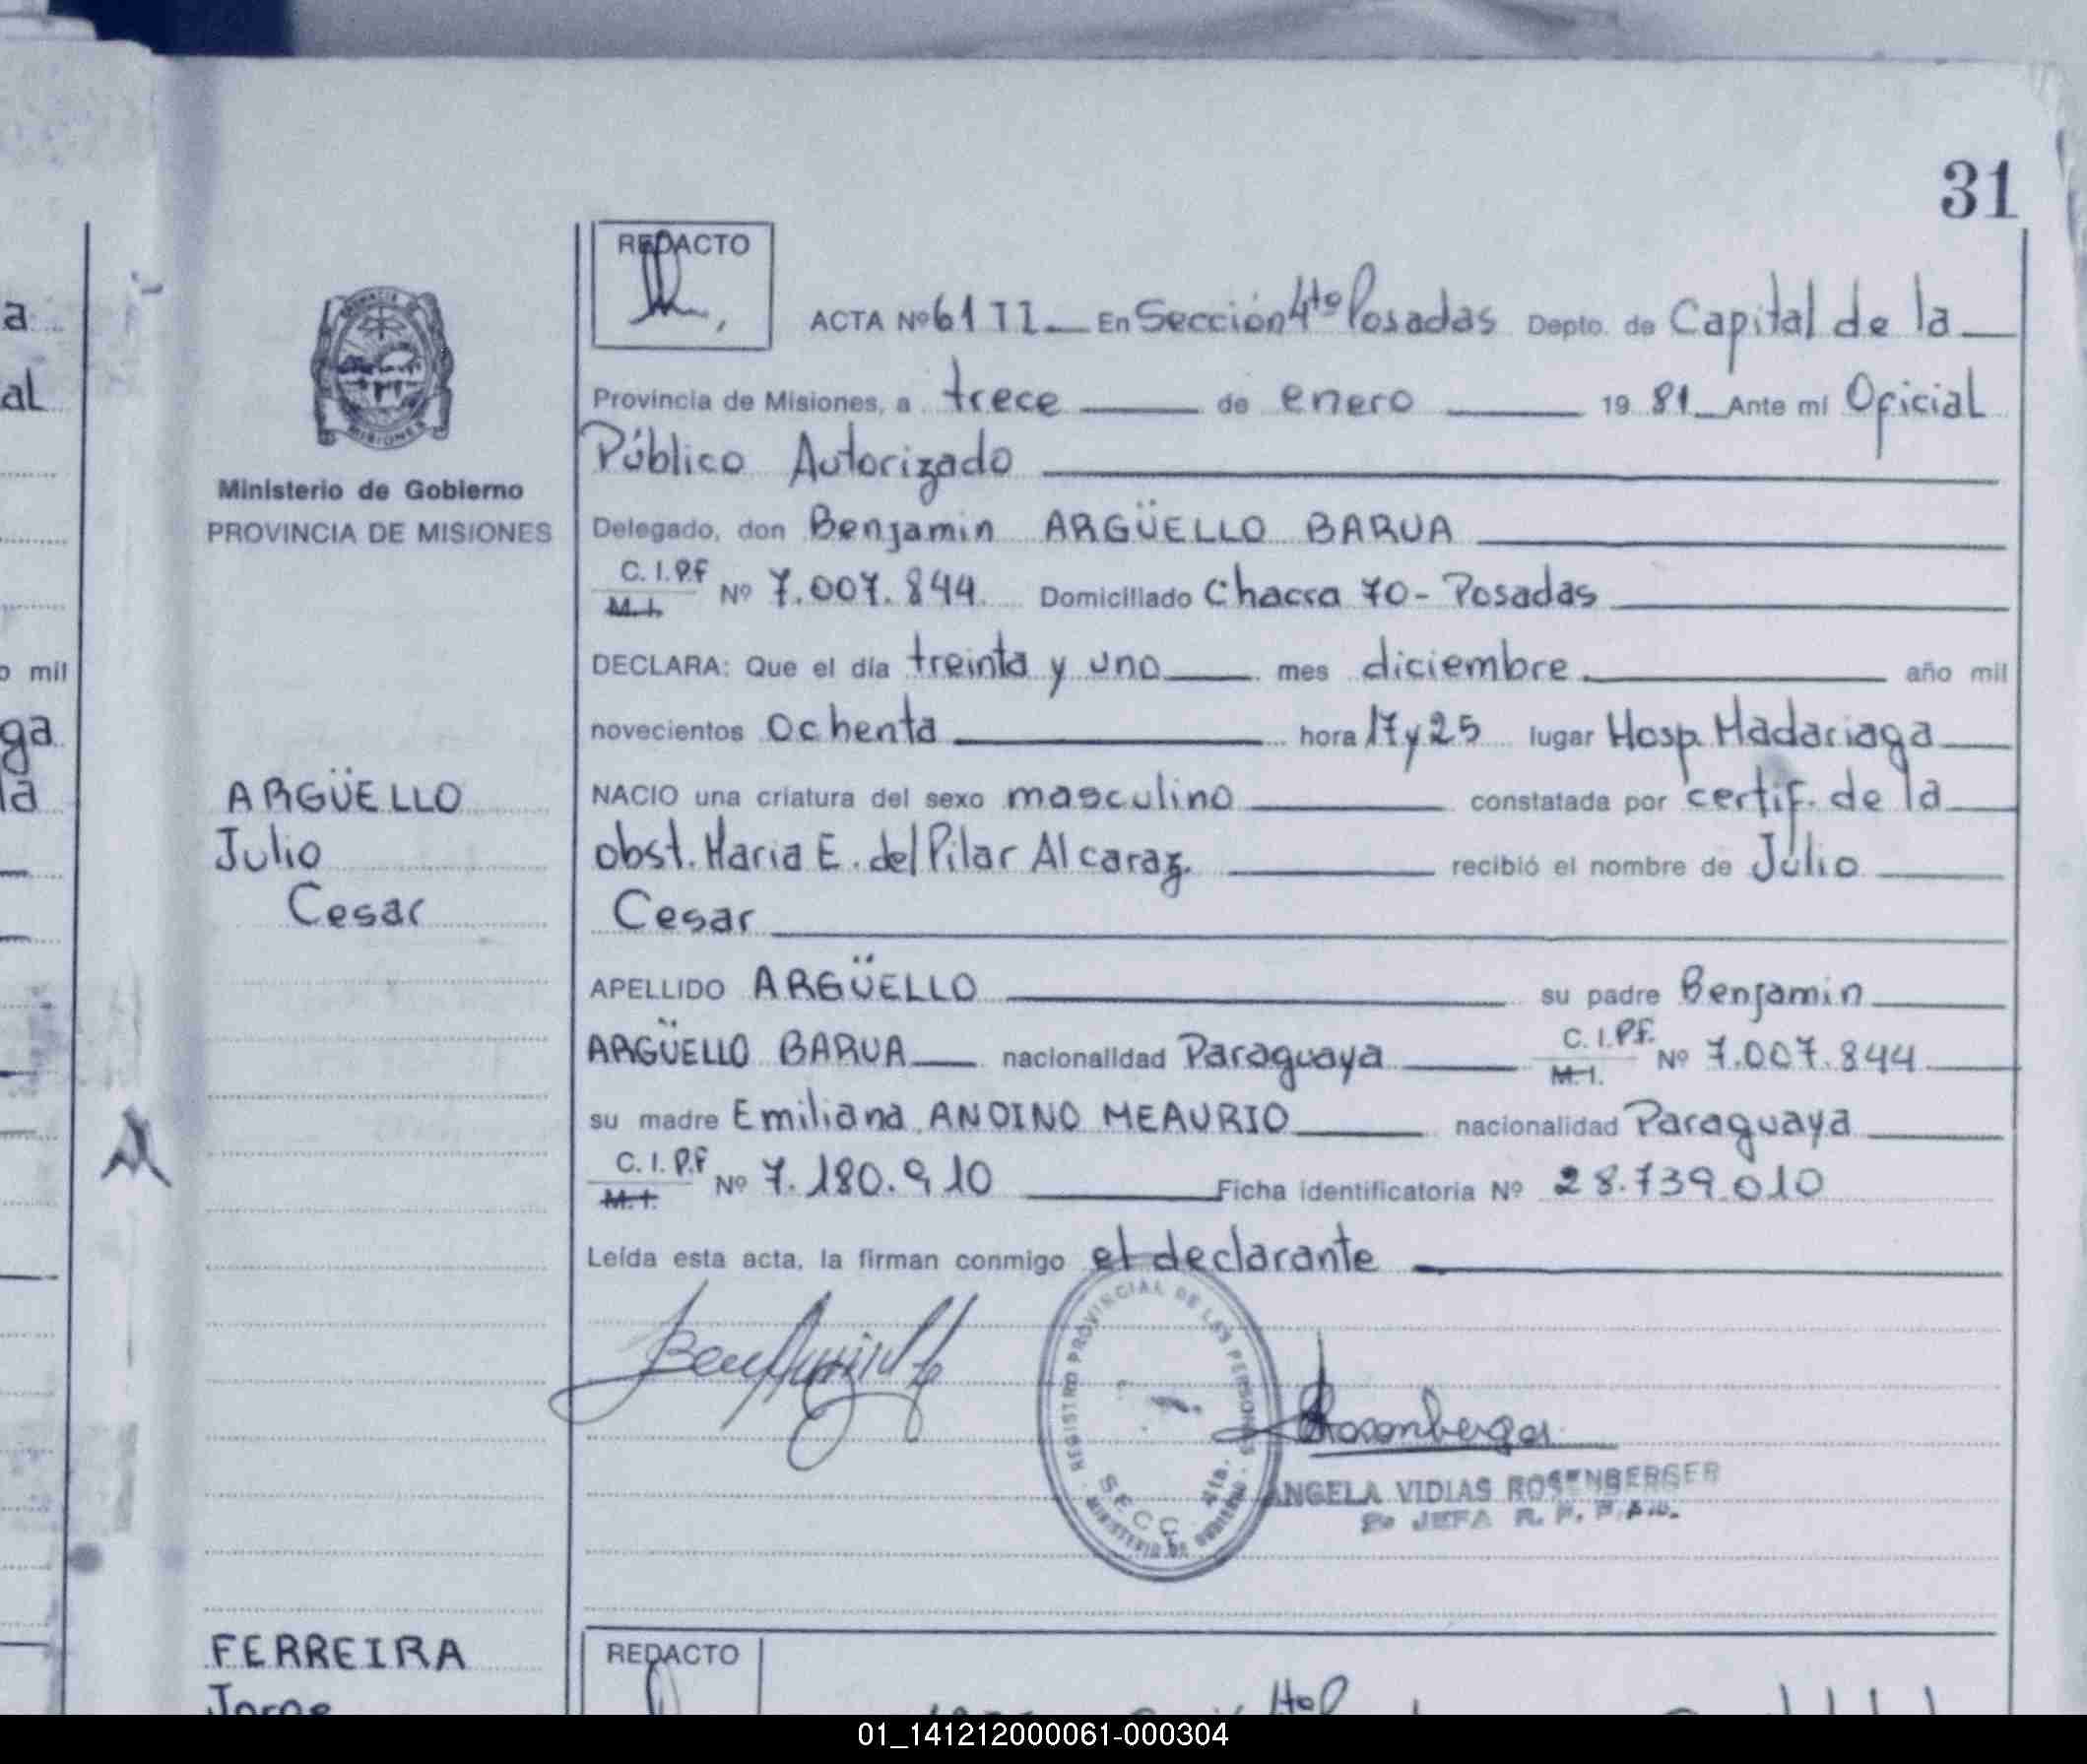 31
REDACTO
ACTA Nº 61 II En Sección 4ta Posadas Depto. de Capital de la
Provincia de Misiones, a trece de enero 19 81 Ante mí Oficial
Público Autorizado
Ministerio de Gobierno
PROVINCIA DE MISIONES
Delegado, don Benjamin ARGÜELLO BARUA
C.I.P.F
M.I. Nº 7.007.844. Domiciliado Chacra 70 - Posadas
DECLARA: Que el día treinta y uno mes diciembre año mil
novecientos ochenta hora 17 y 25 lugar Hosp. Madariaga
ARGÜELLO
Julio
Cesar
NACIO una criatura del sexo masculino constatada por certif. de la
obst. Maria E. del Pilar Alcaraz. recibió el nombre de Julio
Cesar
APELLIDO ARGÜELLO su padre Benjamin
ARGÜELLO BARUA nacionalidad Paraguaya C.I.P.F. M.I. Nº 7.007.844
su madre Emiliana ANDINO MEAURIO nacionalidad Paraguaya
C.I.P.F
M.I. Nº 7.180.910 Ficha identificatoria Nº 28.739.010
Leída esta acta, la firman conmigo el declarante
REGISTRO PROVINCIAL DE LAS PERSONAS
SECC. 4ta.
MINISTERIO DE GOBIERNO
Rosenberger
ANGELA VIDIAS ROSENBERGER
JEFA
FERREIRA
Jorge
REDACTO
a
al
o mil
ga
la
MISIONES
01_141212000061-000304